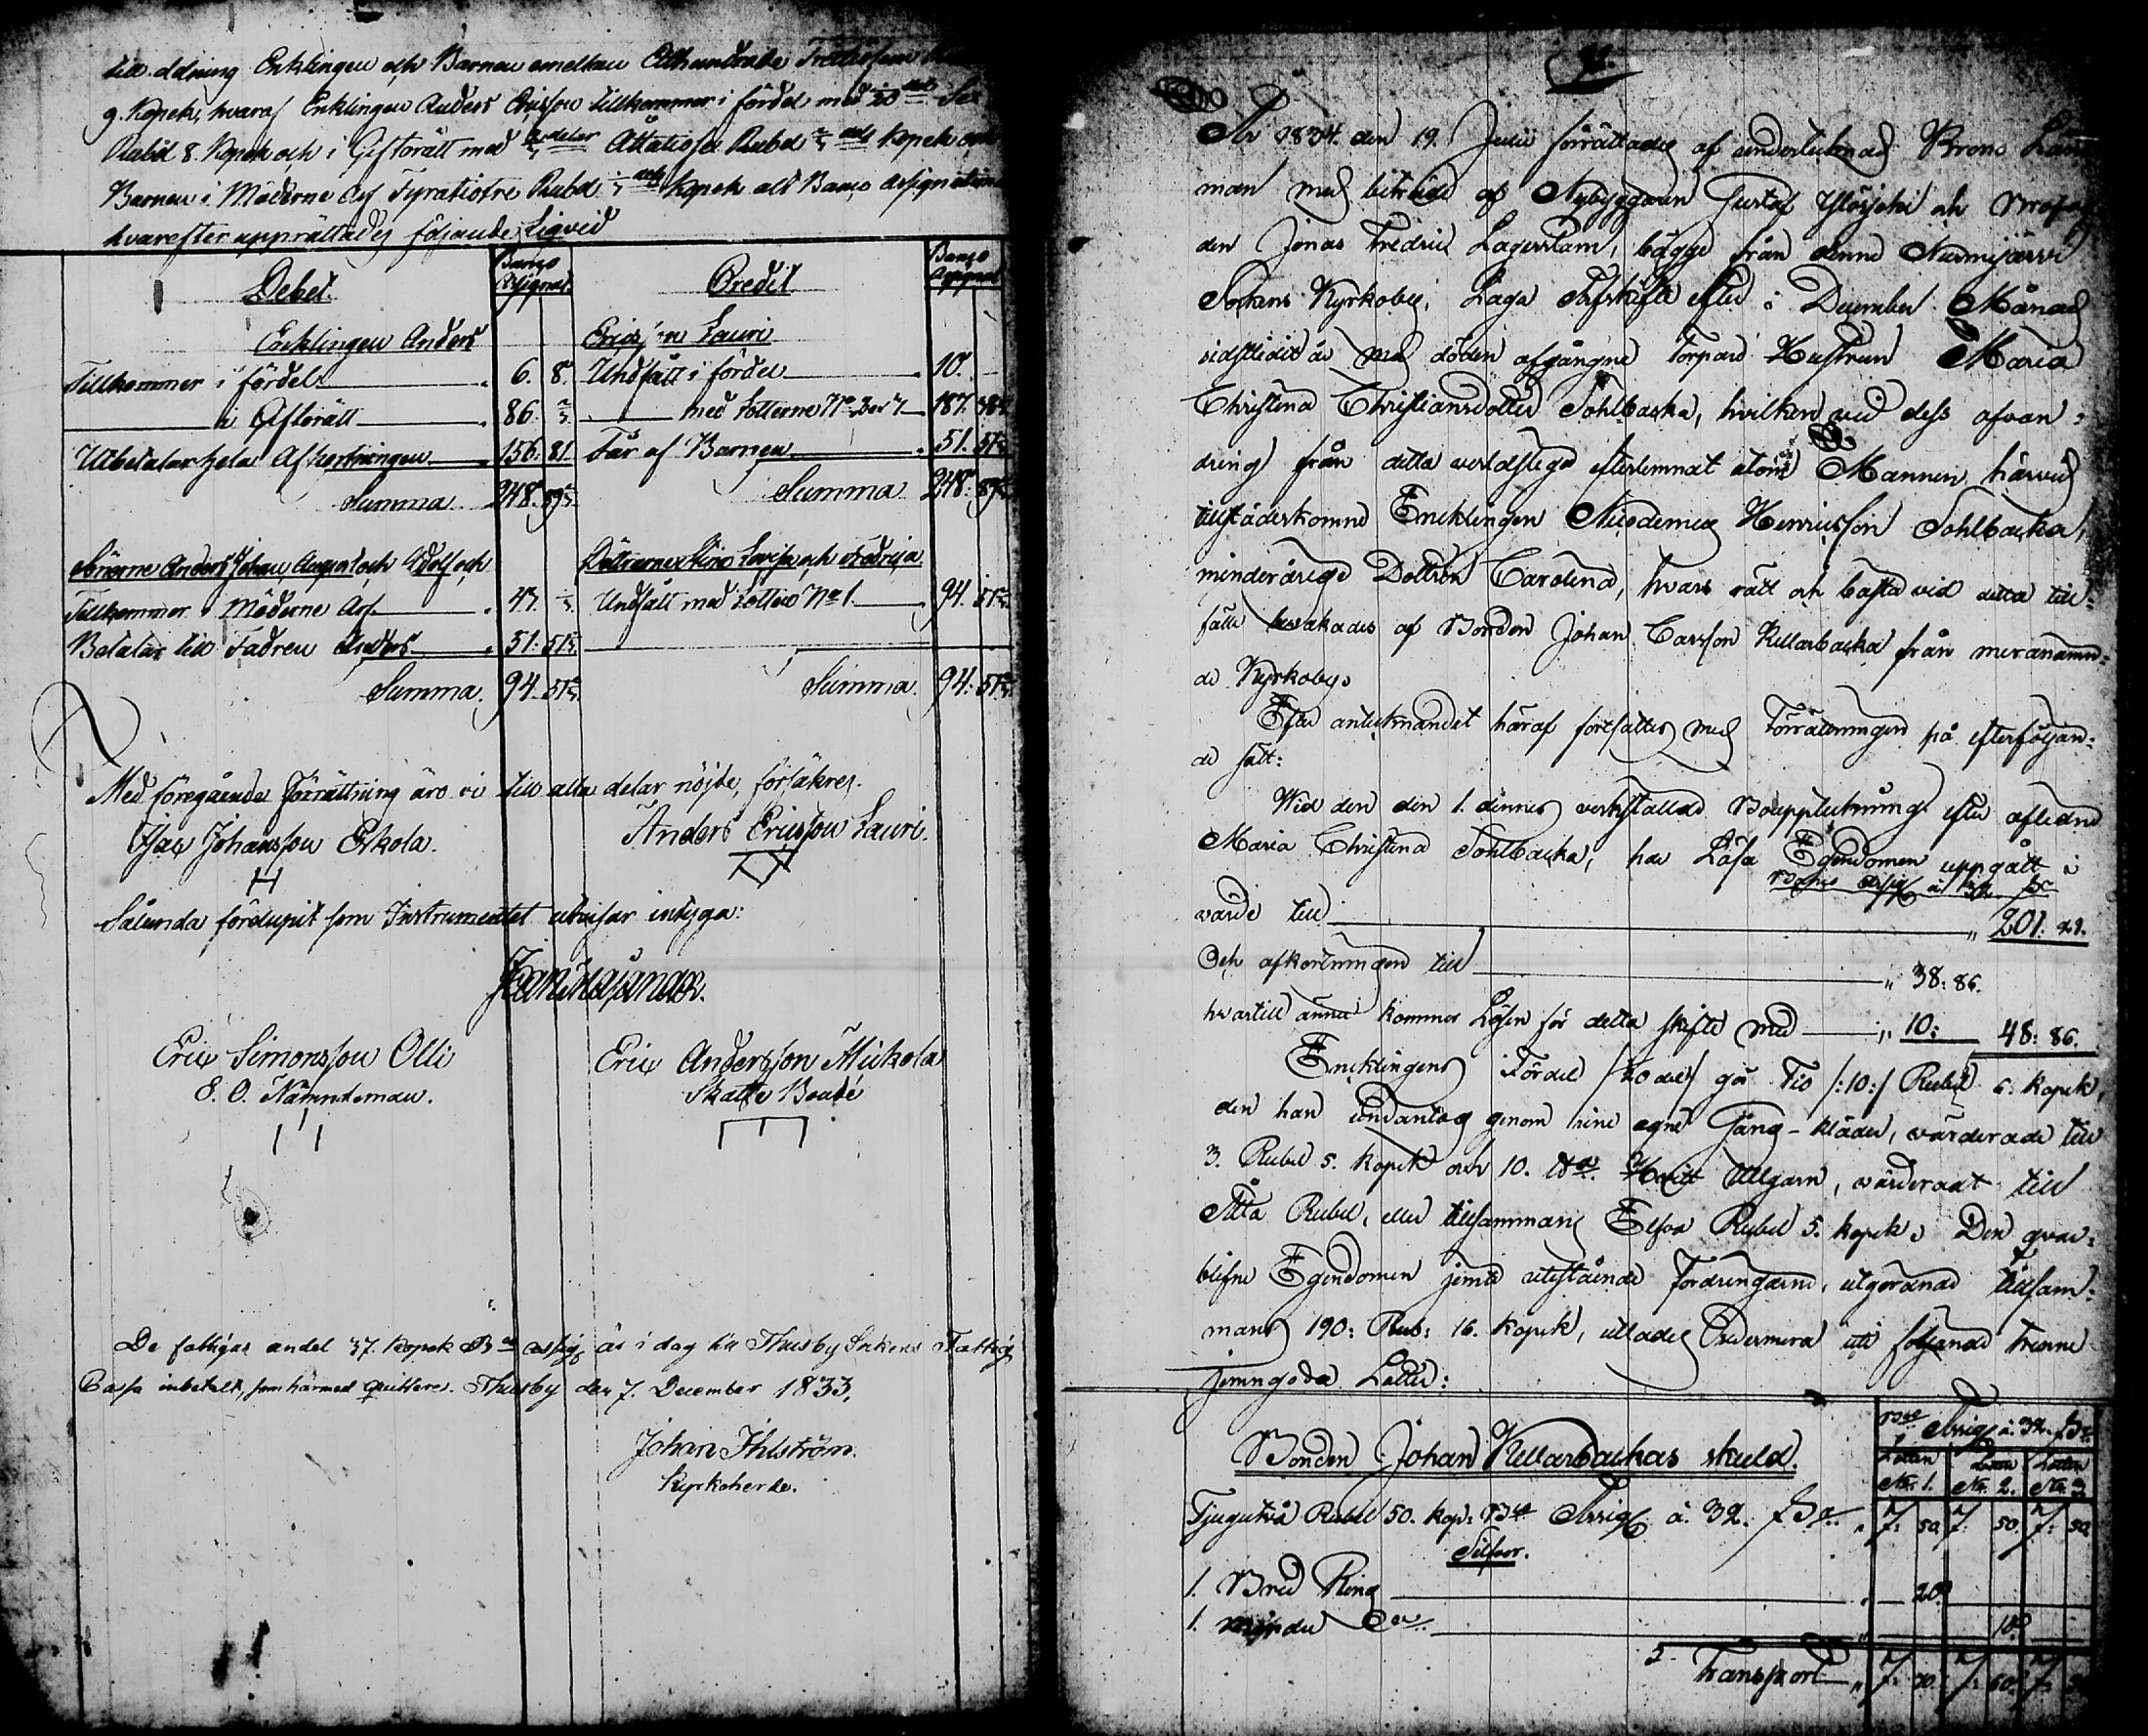 till delning Enklingen och Barnen emellan Etthundrade Trettiofem
9. Kopek, hvaraf Enklingen Anders Ericsson tillkommer i fördel med 1/20 del Sex
Rubel 8. Kopek och i Giftorätt med 2/3 delar Åttatiosex Rubel 2/3 dels kopek och
Barnen i Möderne Arf Fyratiotre Rubel 1/3 dels kopek allt Banco Assignationer
hvarefter upprättades följande Liqvid
Debet. Banco Assignat. Credit Banco Assignat.
Enklingen Anders Ericsson Lauri
Tillkommer i fördel 6. 8. Undfått i fördel 10. -
i Giftorätt 86. 2/3 med Lotterne No 2 och 3 187. 38
Utbetalar hela Afkortningen 156. 81 Får af Barnen 51. 51
Summa 248. 89 Summa 248. 89
Sönerne Anders, Johan, August och Adolf och Döttrarne Stina Lovisa och Fredrica
Tillkommer i Möderne Arf 43. 1/3 Undfått med Lotten No 1. 94. 51
Betalar till Fadren Anders 51. 51
Summa. 94. 51 Summa. 94. 51
Med föregående förrättning äro vi till alla delar nöjde, försäkres.
Isac Johansson Eskola. Anders Ericsson Lauri.
Sålunda förelupit som Instrumentet utvisar intyga:
Eric Simonsson Olli Eric Andersson Mickola
E. O. Nämndeman. Skatte Bonde
De fattigas andel 37. kopek Bco assig. är i dag till Thusby Sockens Fattig
Cassa inbetalt, som härmed quitteres. Thusby den 7. December 1833.
Johan Ihlström.
Kyrkoherde.
År 1834. den 19. Julii förrättades af undertecknad Krono Läns
man med biträde af Nybyggaren Gustaf Ylöjoki och
den Jonas Fredric Lagerstam, bägge från denne Nurmijärvi
Sockens Kyrkoby, Laga Arfskifte efter i December Månad
sidstledit år med döden afgångne Torpare Hustrun Maria
Christina Christiansdotter Sohlbacka, hvilken vid dess afvan-
dring från detta verldsliga efterlemnat utom Mannen härvid
tillstädeskomne Encklingen Nicodemus Henricsson Sohlbacka,
minderåriga Dottren Carolina, hvars rätt och bästa vid detta till-
fälle bevakades af Bonden Johan Carlsson Kellarbacka från meranämn-
de Kyrkoby.
Efter antecknandet häraf fortsattes med Förrättningen på efterföljan-
de sätt:
Wid den den 1. dennes verkstälde Bouppteckning efter aflidne
Maria Christina Sohlbacka, har Lösa Egendomen uppgått i
Banco Assig. á 32. sk
värde till 201: 21.
Och afkortningen till 38: 86.
hvartill ännu kommer Lösen för detta skifte med 10: 48: 86.
Encklingens Fördel 1/20 del gör Tio /:10:/ Rubel 6. kopek,
den han undantog genom sine egne Gång-kläder, värderade till
3. Rubel 5. kopek och 10. Hvitt Ullgarn, värderadt till
Åtta Rubel, eller tillsammans Elfva Rubel 5. kopek. Den qvar-
blifne Egendomen jemte utestående Fordringarne, utgörande tillsam-
mans 190: Rub: 16. kopek, utlades Ondermera uti följande trenne
jemngoda Lotter:
Bco Assig. á 32. sk
Lotten No. 1. Lotten No. 2. Lotten No. 3
Bonden Johan Kellarbackas skuld.
Tjugutvå Rubel 50. kop: Bco Assig. á 32. sk 7: 50 7: 50. 7: 50
Silfver.
1. Bred Ring 20
1. mindre Do 10
Transport 7: 70. 7: 60. 7: 50